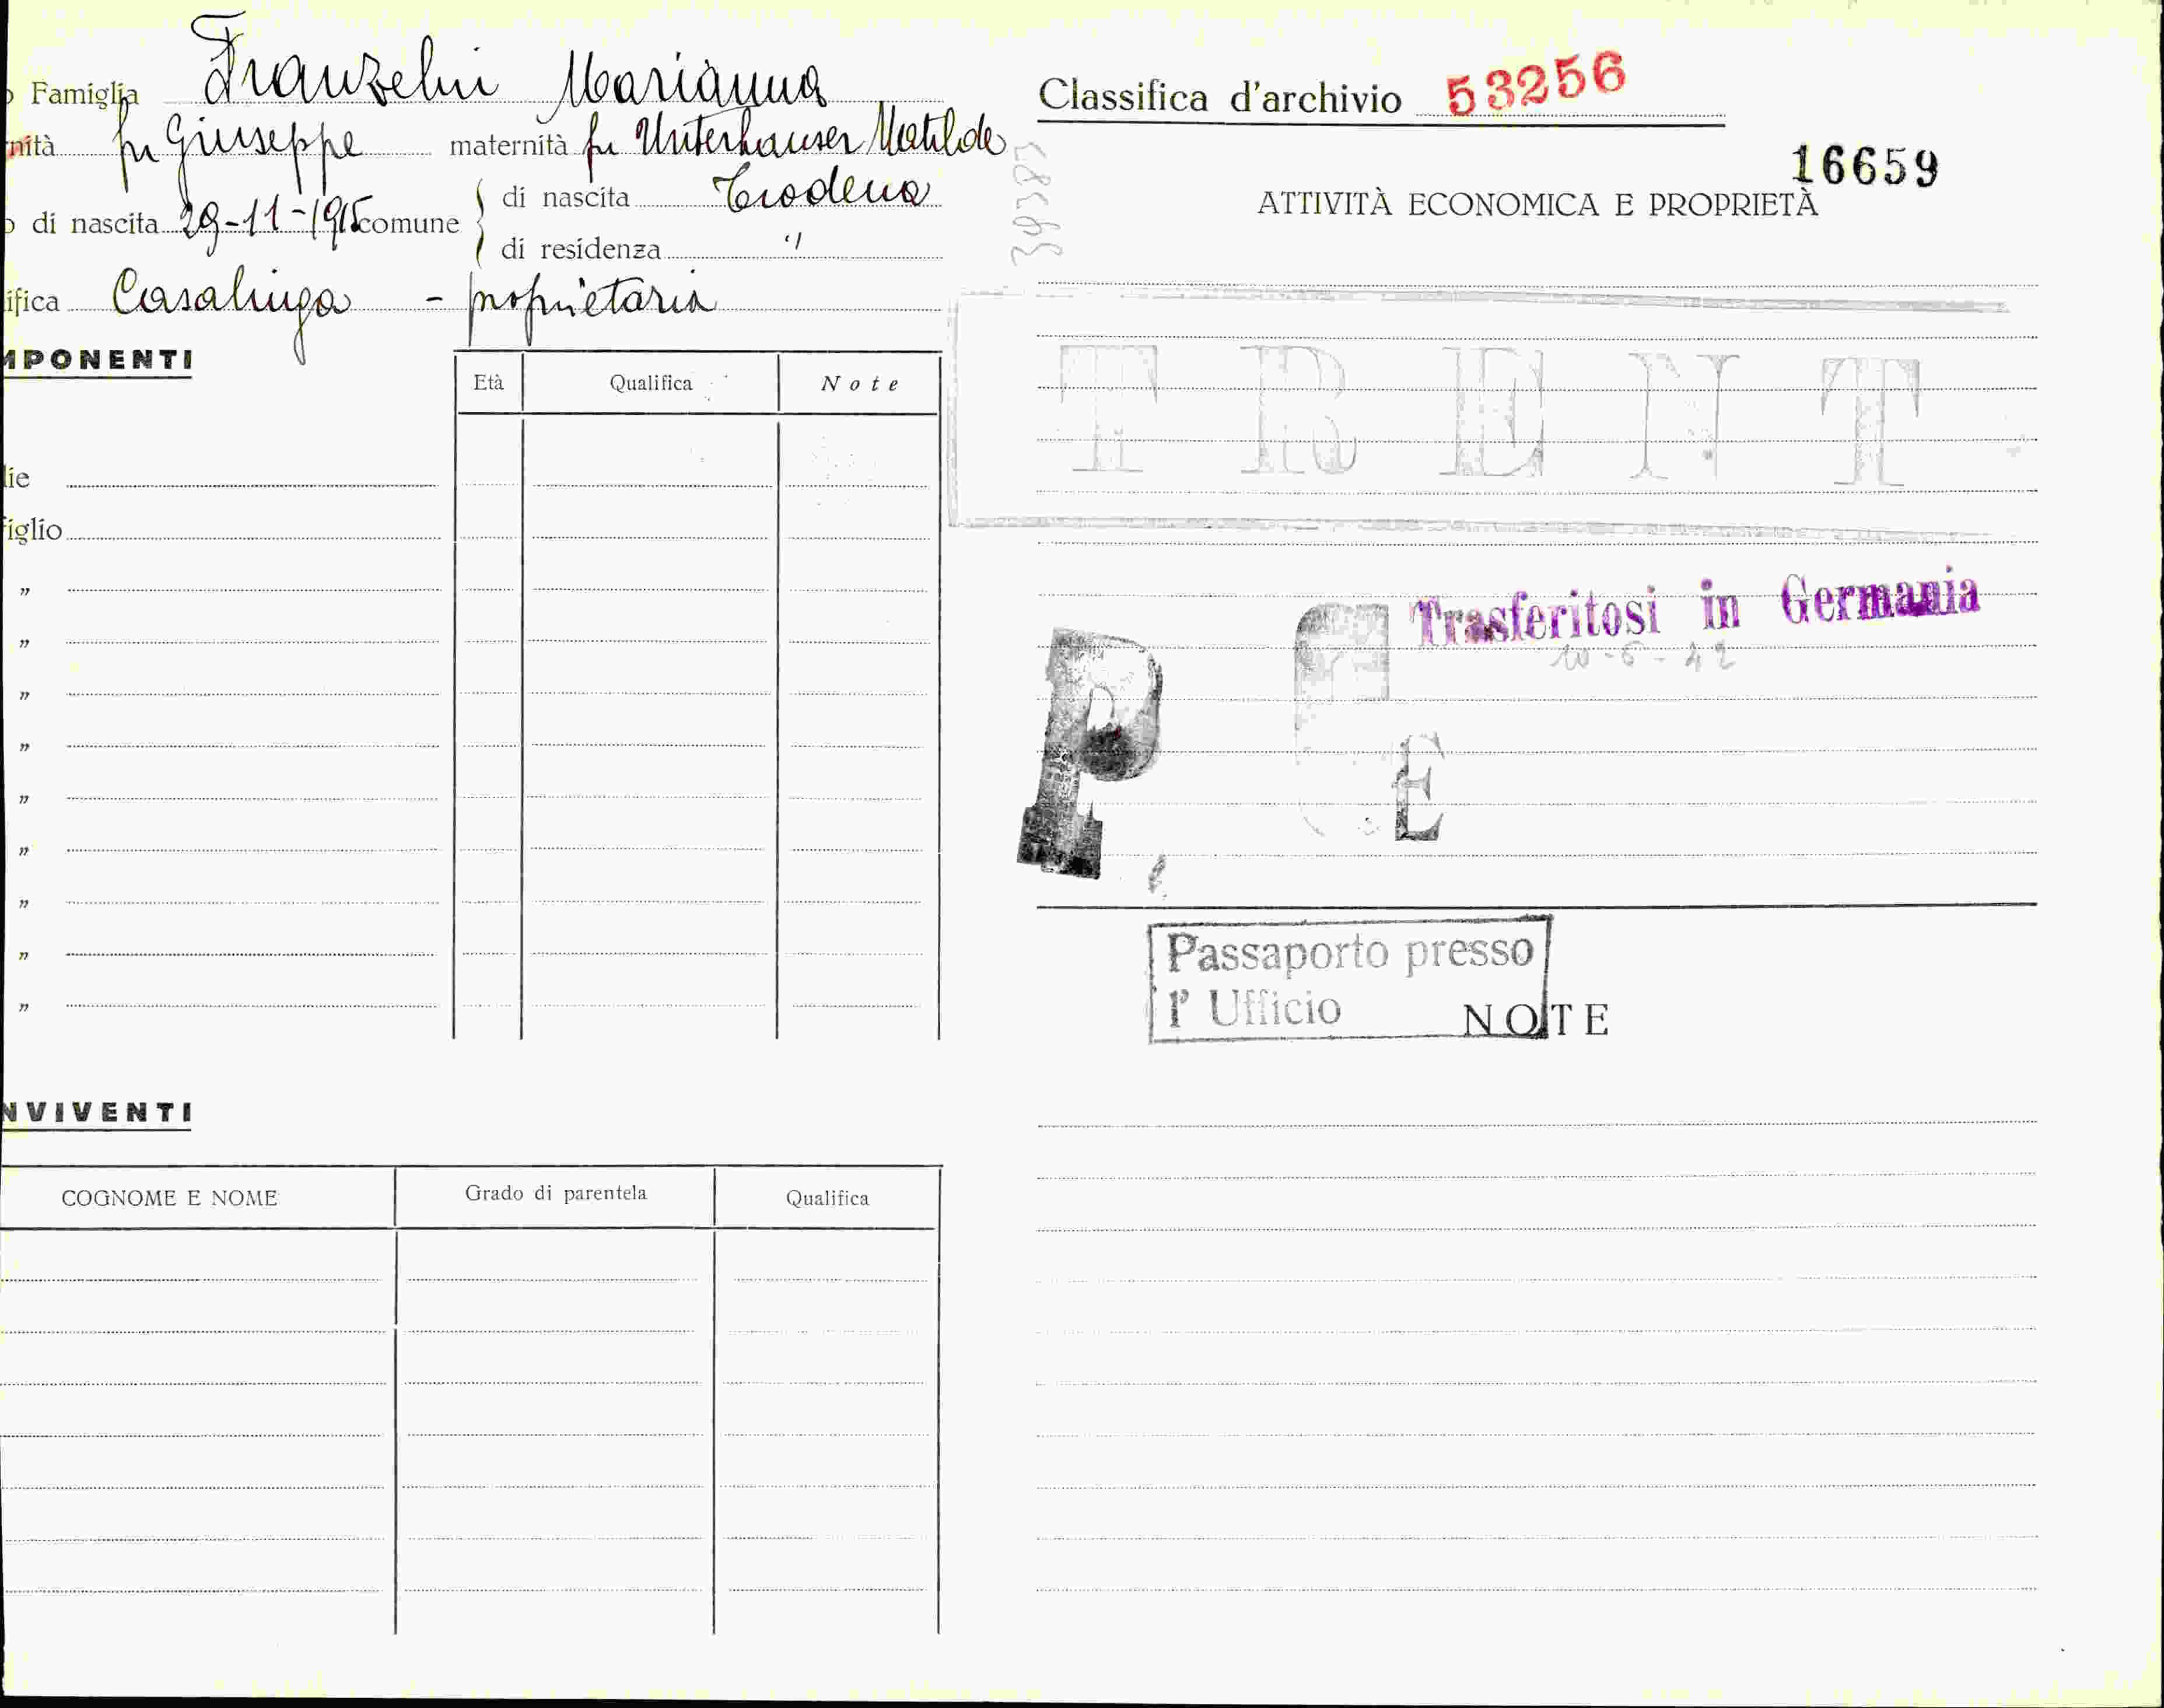 Famiglia Franzelin Marianna
nità fu Giuseppe maternità fu Unterhauser Matilde
di nascita 29-11-1915 comune di nascita Trodena
di residenza "
ifica Casalinga - proprietaria
MPONENTI
Età Qualifica Note
lie
figlio
"
"
"
"
"
"
"
"
"
NVIVENTI
COGNOME E NOME Grado di parentela Qualifica
Classifica d'archivio 53256
16659
39387
ATTIVITÀ ECONOMICA E PROPRIETÀ
TRENT
Trasferitosi in Germania
10-6-42
P
E
Passaporto presso
l' Ufficio
NOTE